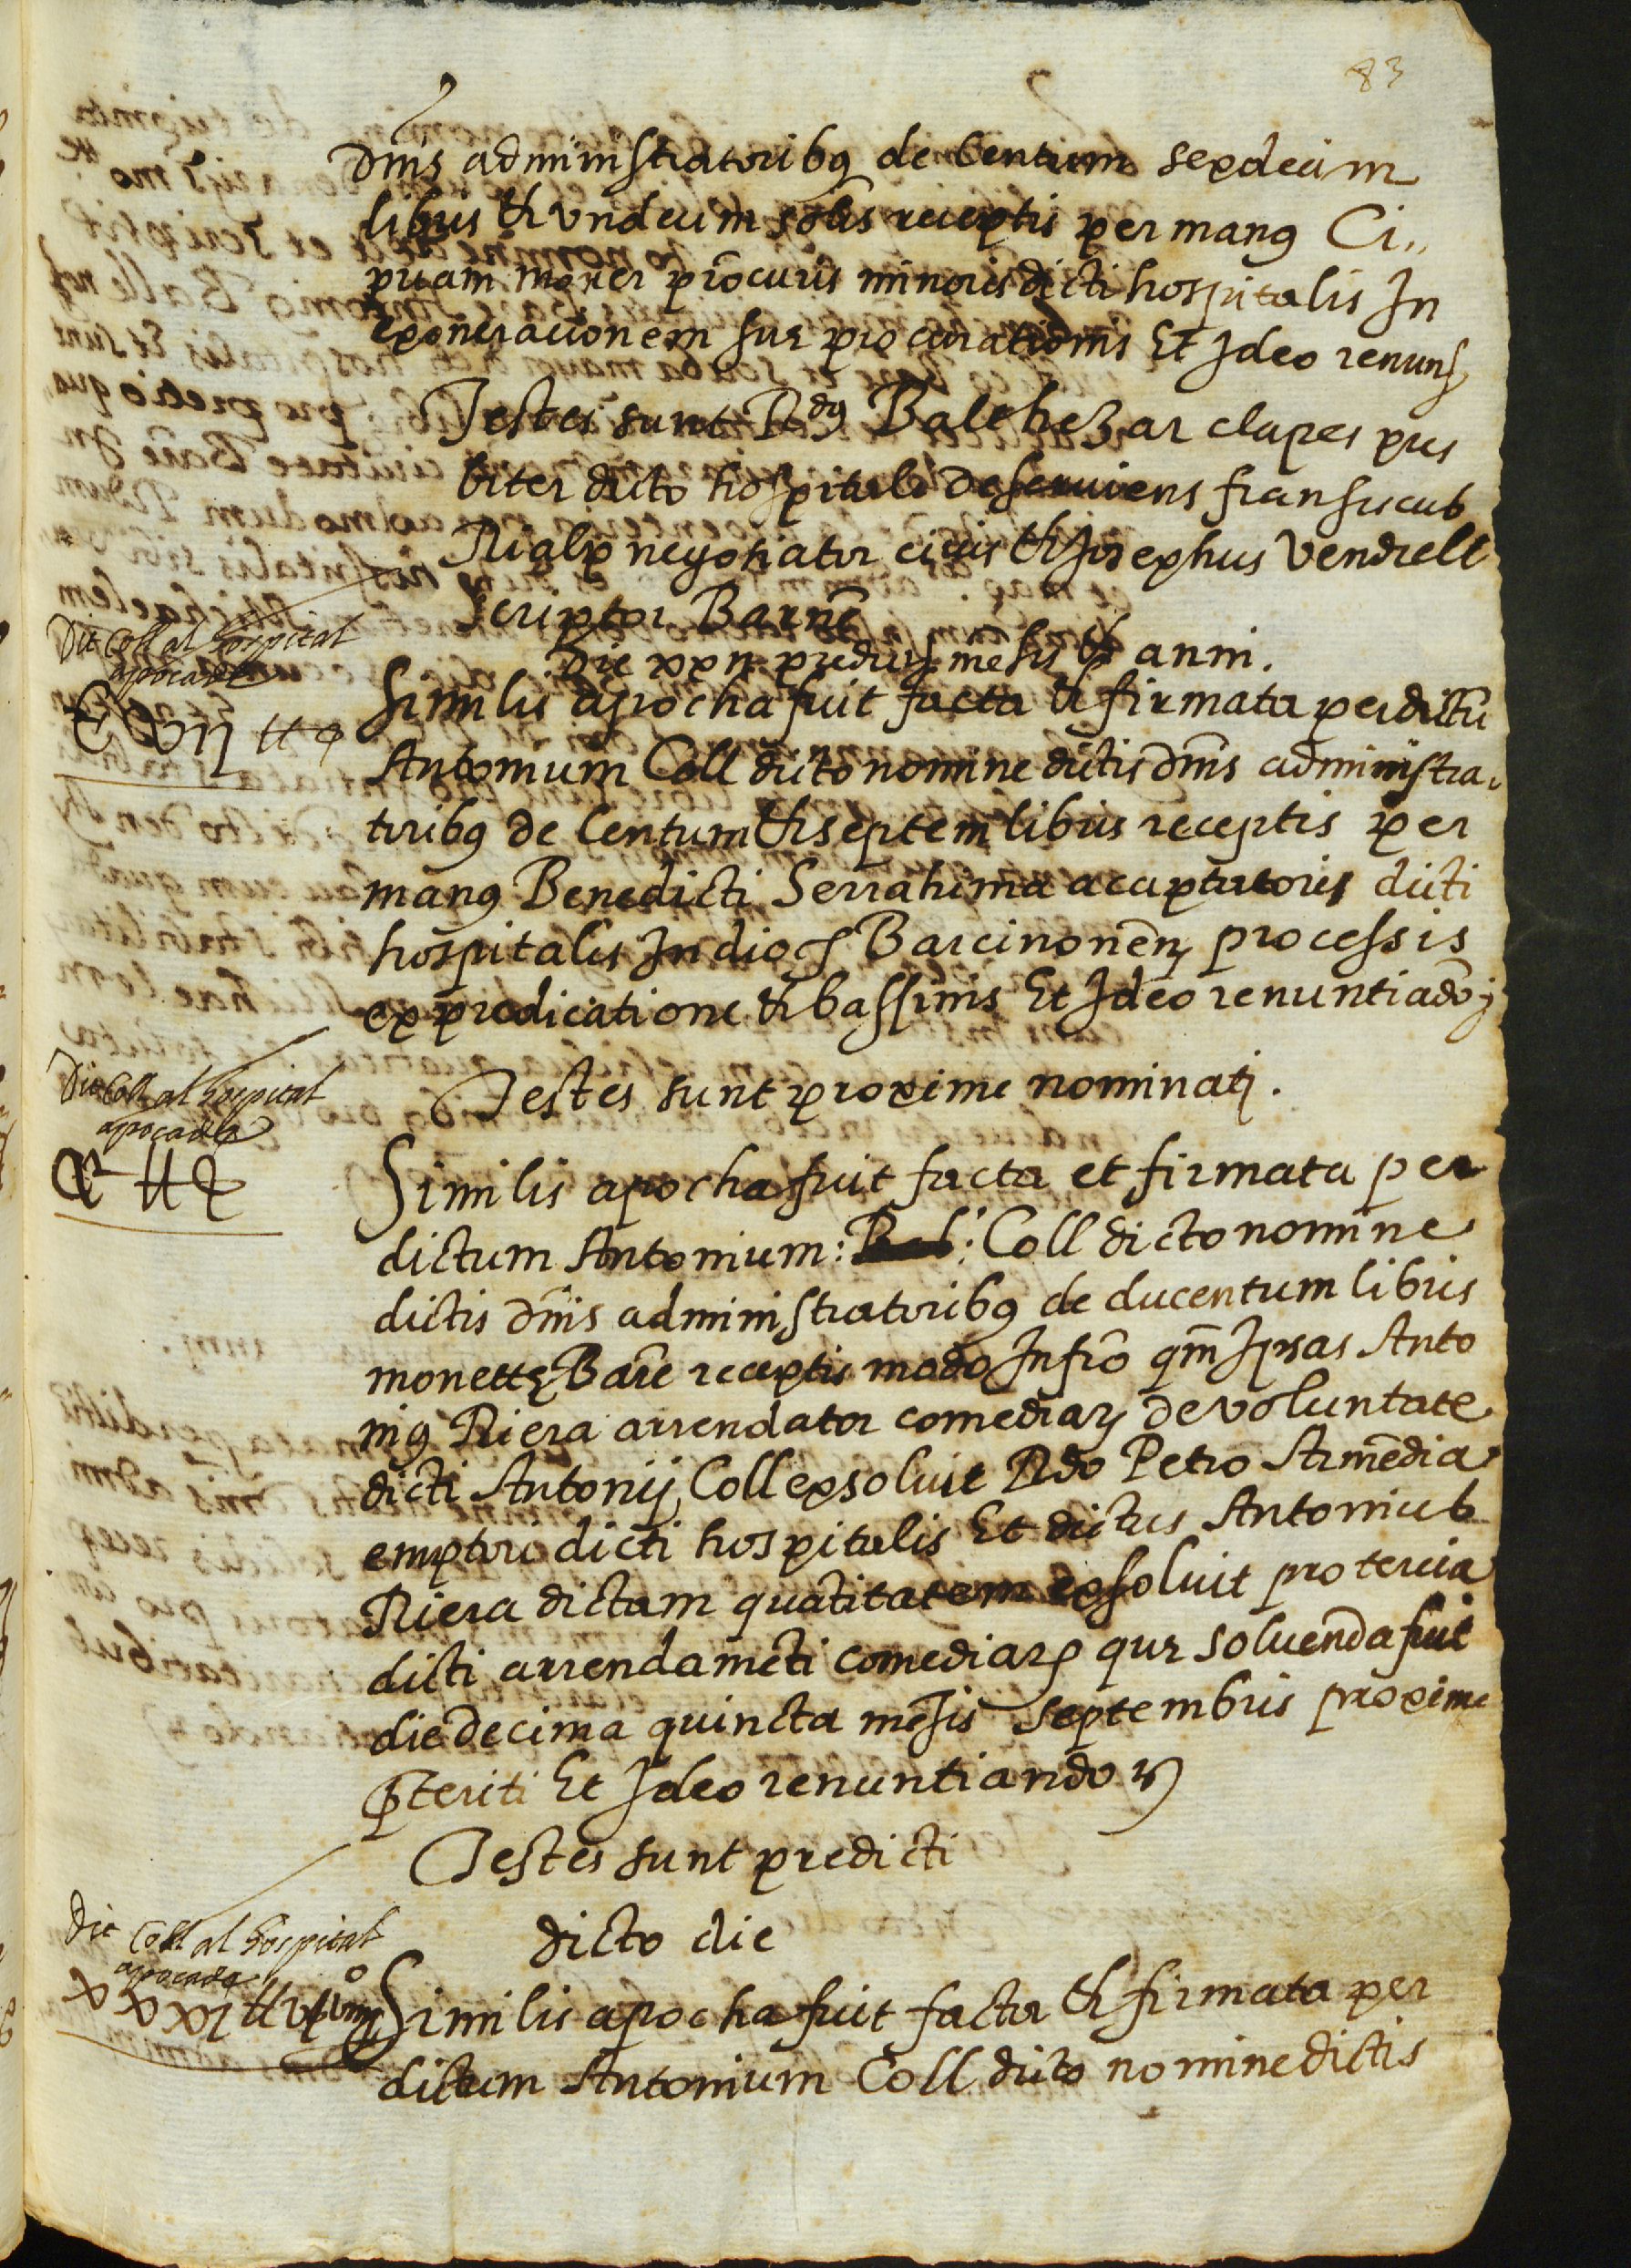 83
dn̄is administratoribꝰ de Centum sexdecim
libris et undecim solis receptis per manꝰ Ci„
priam moner prōcuris minoris dicti hospitalis In
exonerationem suę procurationis Et Ideo renunſ
Testes sunt Rdꝰ Balthezar clapes pres
biter dicto hospitali deserviens franciscus
Rialp negotiator civis et Josephus Vendrell
Scriptor Barn̄e
Die xxij predicti mēsis et anni.
Dit Coll al hospital
apoca de
CVII ll s
Similis apocha fuit facta et firmata per dictū
Antonium Coll dicto nomine dictis dn̄is administra„
toribꝰ de Centum et septem libris receptis per
manꝰ Benedicti Serrahima acaptatoris dicti
hospitalis In dioc Barcinonēn processis
ex predicatione et bassinis Et Ideo renuntiādo
Testes sunt proxime nominati.
Dit Coll al hospital
apoca de
CC ll s
Similis apocha fuit facta et firmata per
dictum Antonium: Coll dicto nomine
dictis dn̄is administratoribꝰ de ducentum libris
monettę Barc̄e receptis modo Infr̄o qm̄ Ipsas Anto
niꝰ Riera arrendator comediarꝝ de voluntate
dicti Antonij Coll exsoluit Rdo Petro Armēdia
emptori dicti hospitalis Et dictus Antonius
Riera dictam quātitatem exsoluit pro tercia
dicti arrendamēti comediarꝝ quę soluenda fuit
die decima quincta mēsis Septembris proxime
p̄teriti Et Ideo renuntiando
Testes sunt predicti
dicto die
Dit Coll al hospital
apoca de
Similis apocha fuit facta et firmata per
dictum Antonium Coll dicto nomine dictis